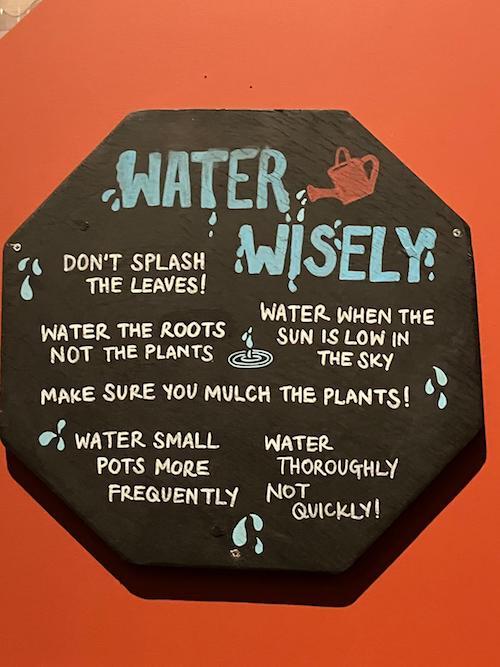 WATER
WISELY
DON'T SPLASH
THE LEAVES!
WATER THE ROOTS
NOT THE PLANTS
WATER WHEN THE
SUN IS LOW IN
THE SKY
MAKE SURE YOU MULCH THE PLANTS!
WATER SMALL
POTS MORE
FREQUENTLY
WATER
THOROUGHLY
NOT
QUICKLY!